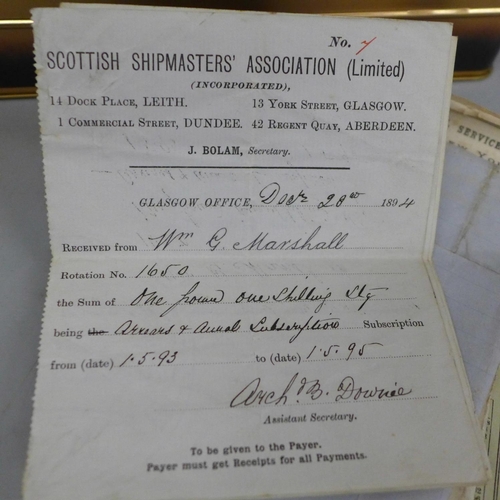 No. 7
SCOTTISH SHIPMASTERS' ASSOCIATION (Limited)
(INCORPORATED),
14 DOCK PLACE, LEITH. 13 YORK STREET, GLASGOW.
1 COMMERCIAL STREET, DUNDEE. 42 REGENT QUAY, ABERDEEN.
J. BOLAM, Secretary.
GLASGOW OFFICE, Decr 20th 1894
RECEIVED from Wm G. Marshall
Rotation No. 1650
the Sum of One pound one Shilling Stg
being the Arrears & Annual Subscription Subscription
from (date) 1.5.93 to (date) 1.5.95
Arch. B. Downie
Assistant Secretary.
To be given to the Payer.
Payer must get Receipts for all Payments.
SERVICE